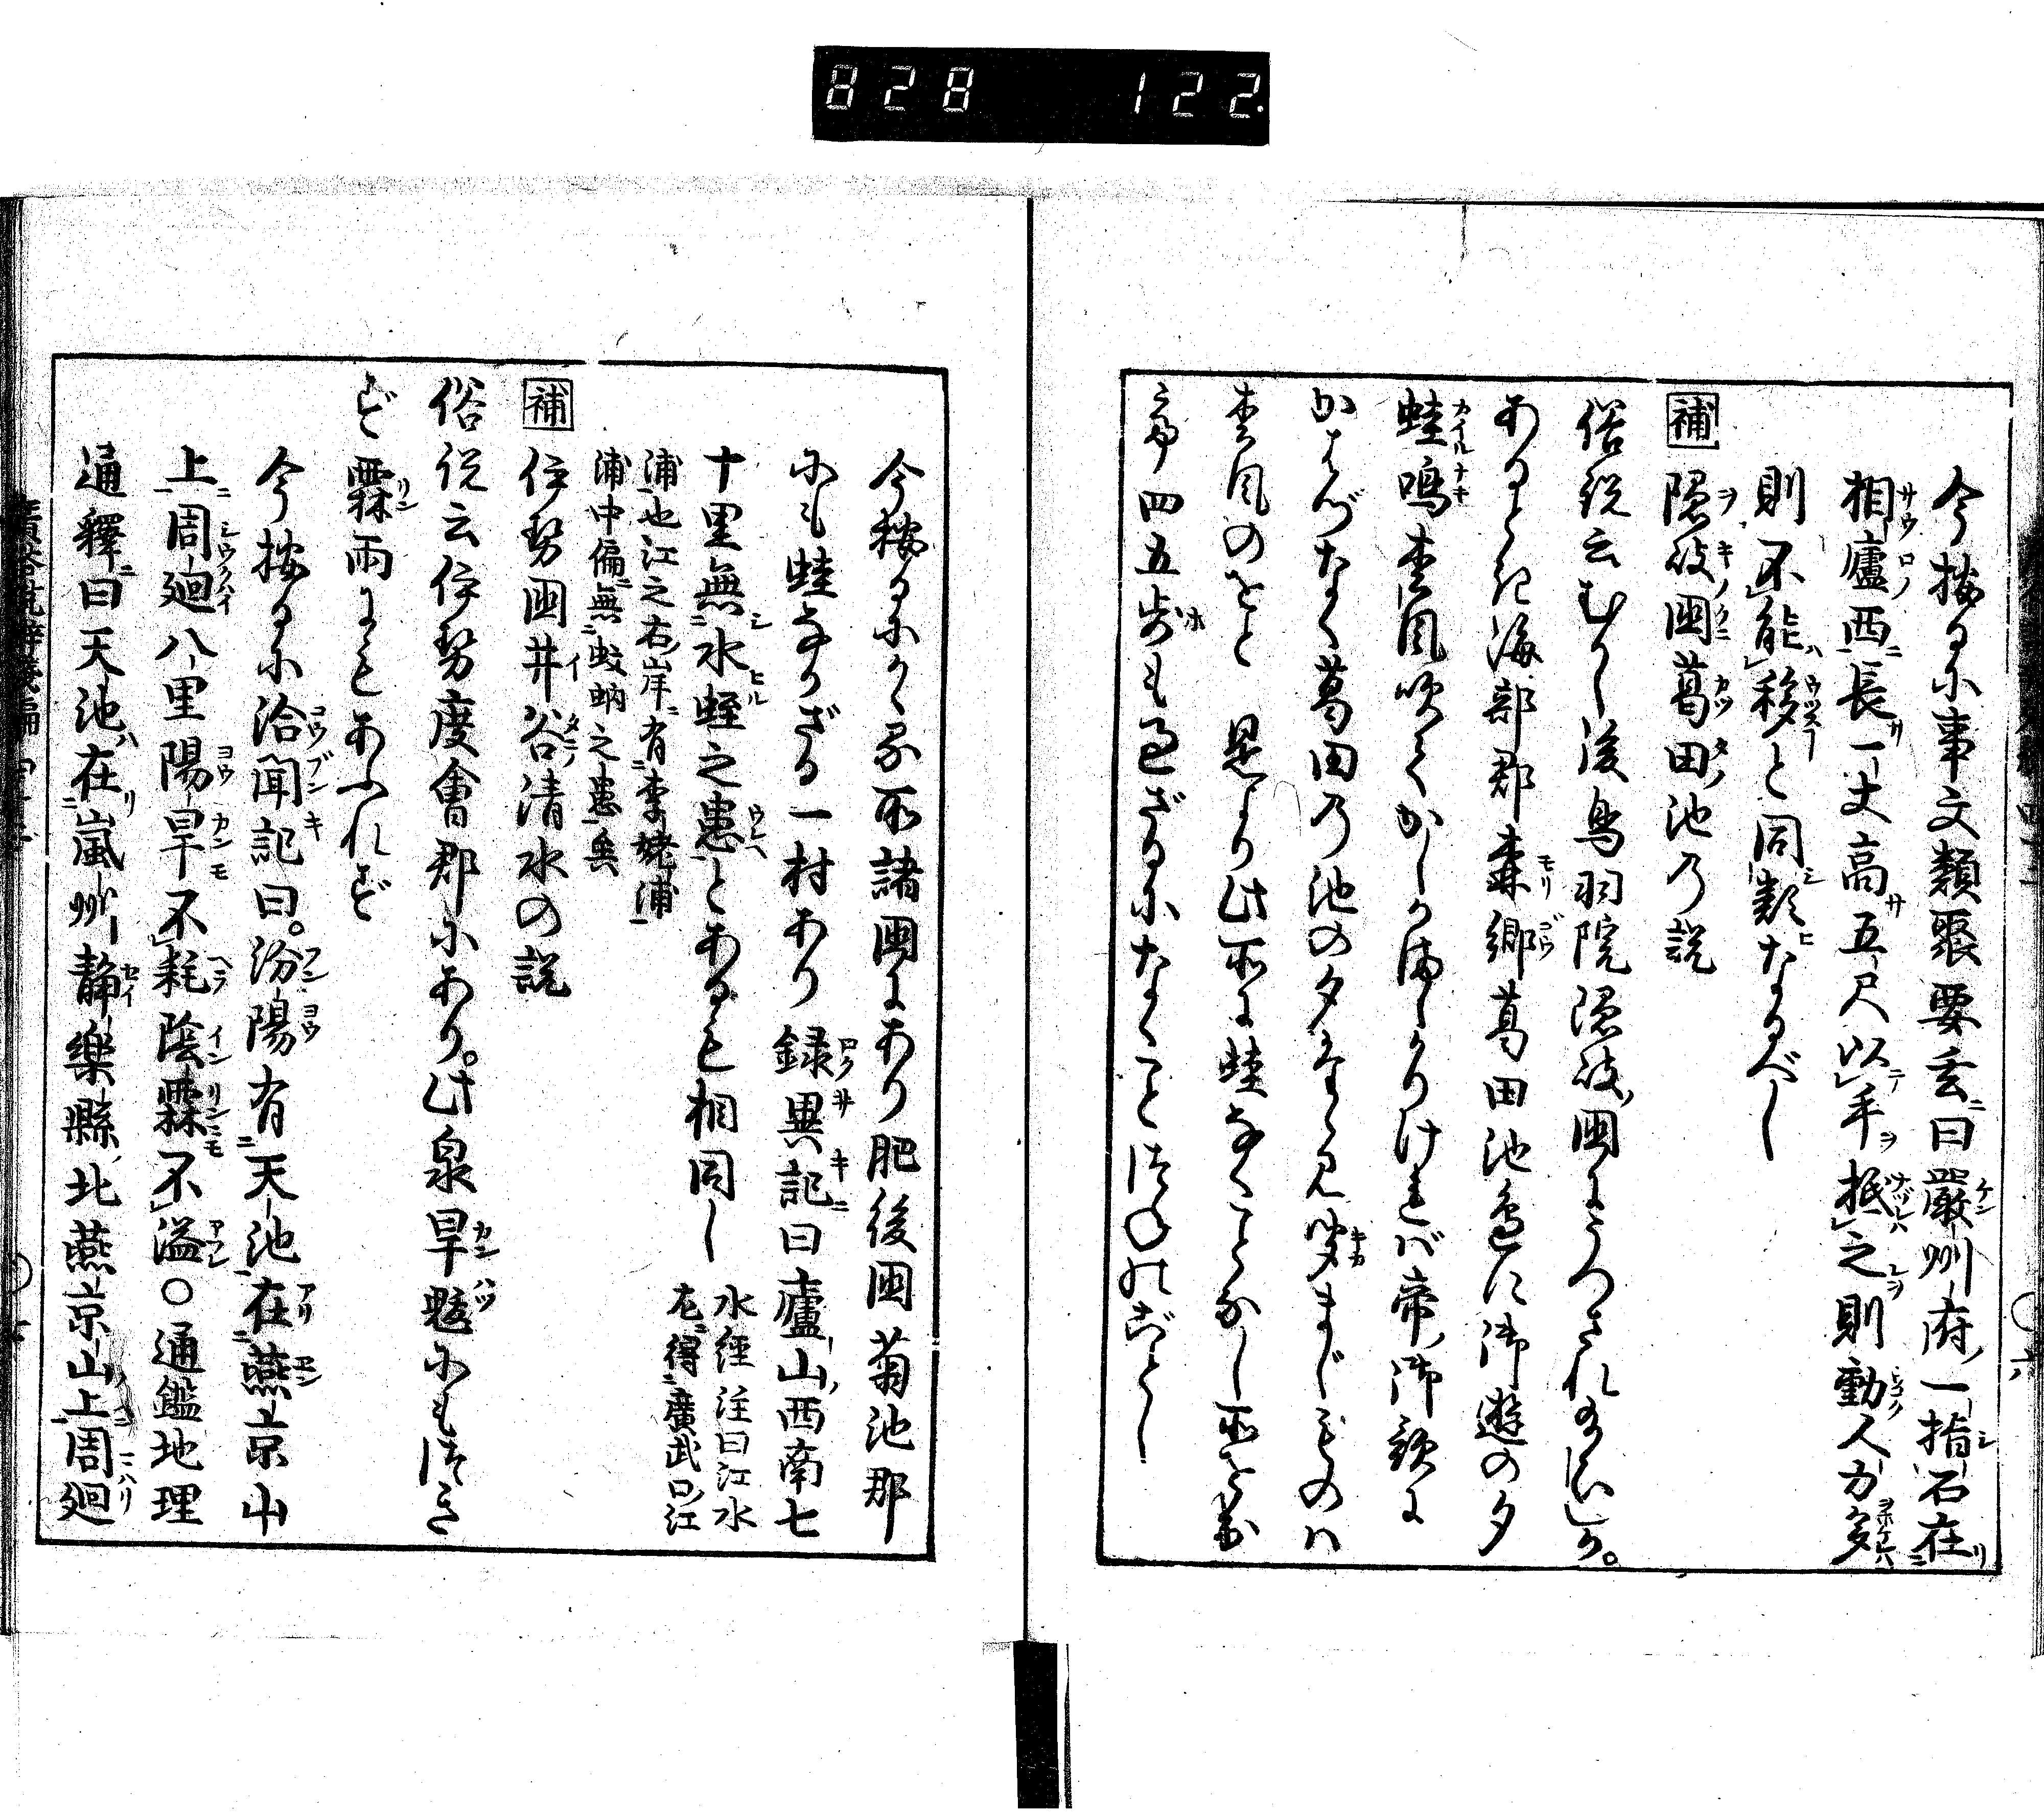 828 122
今按るに事文類聚要玄曰嚴州府一指石在
相廬西長一丈高五尺以手抵之則動人力多
則不能移と同類なるべし
補 隠岐國葛田池乃説
俗説云むかし後鳥羽院隠岐國にうつされ給ひしか。
あるとき海部郡森郷葛田池邉に御遊の夕
蛙鳴松風吹てかしかましかりけれバ帝御歌に
かはづなく葛田乃池の夕たゝみ聞まじものハ
松風のをと 是より此所に蛙なくことなし所を
四五歩も過ざるになくこと
今按るにかゝる所諸國にあり肥後國菊池郡
にも蛙なかざる一村あり録異記曰廬山西南七
十里無水蛭之患とあるも相同し 水經注曰江水
左得廣武口江
浦也江之右岸有李姥浦
浦中偏無蚊蚋之患矣
補 伊勢國井谷清水の説
俗説云伊勢度會郡にあり。此泉旱魃にもつき
ず霖雨にもあふれず
今按るに洽聞記曰。汾陽有天池在燕京山
上周廻八里陽旱不耗陰霖不溢〇通鑑地理
通釋曰天池在嵐州靜樂縣北燕京山上周廻